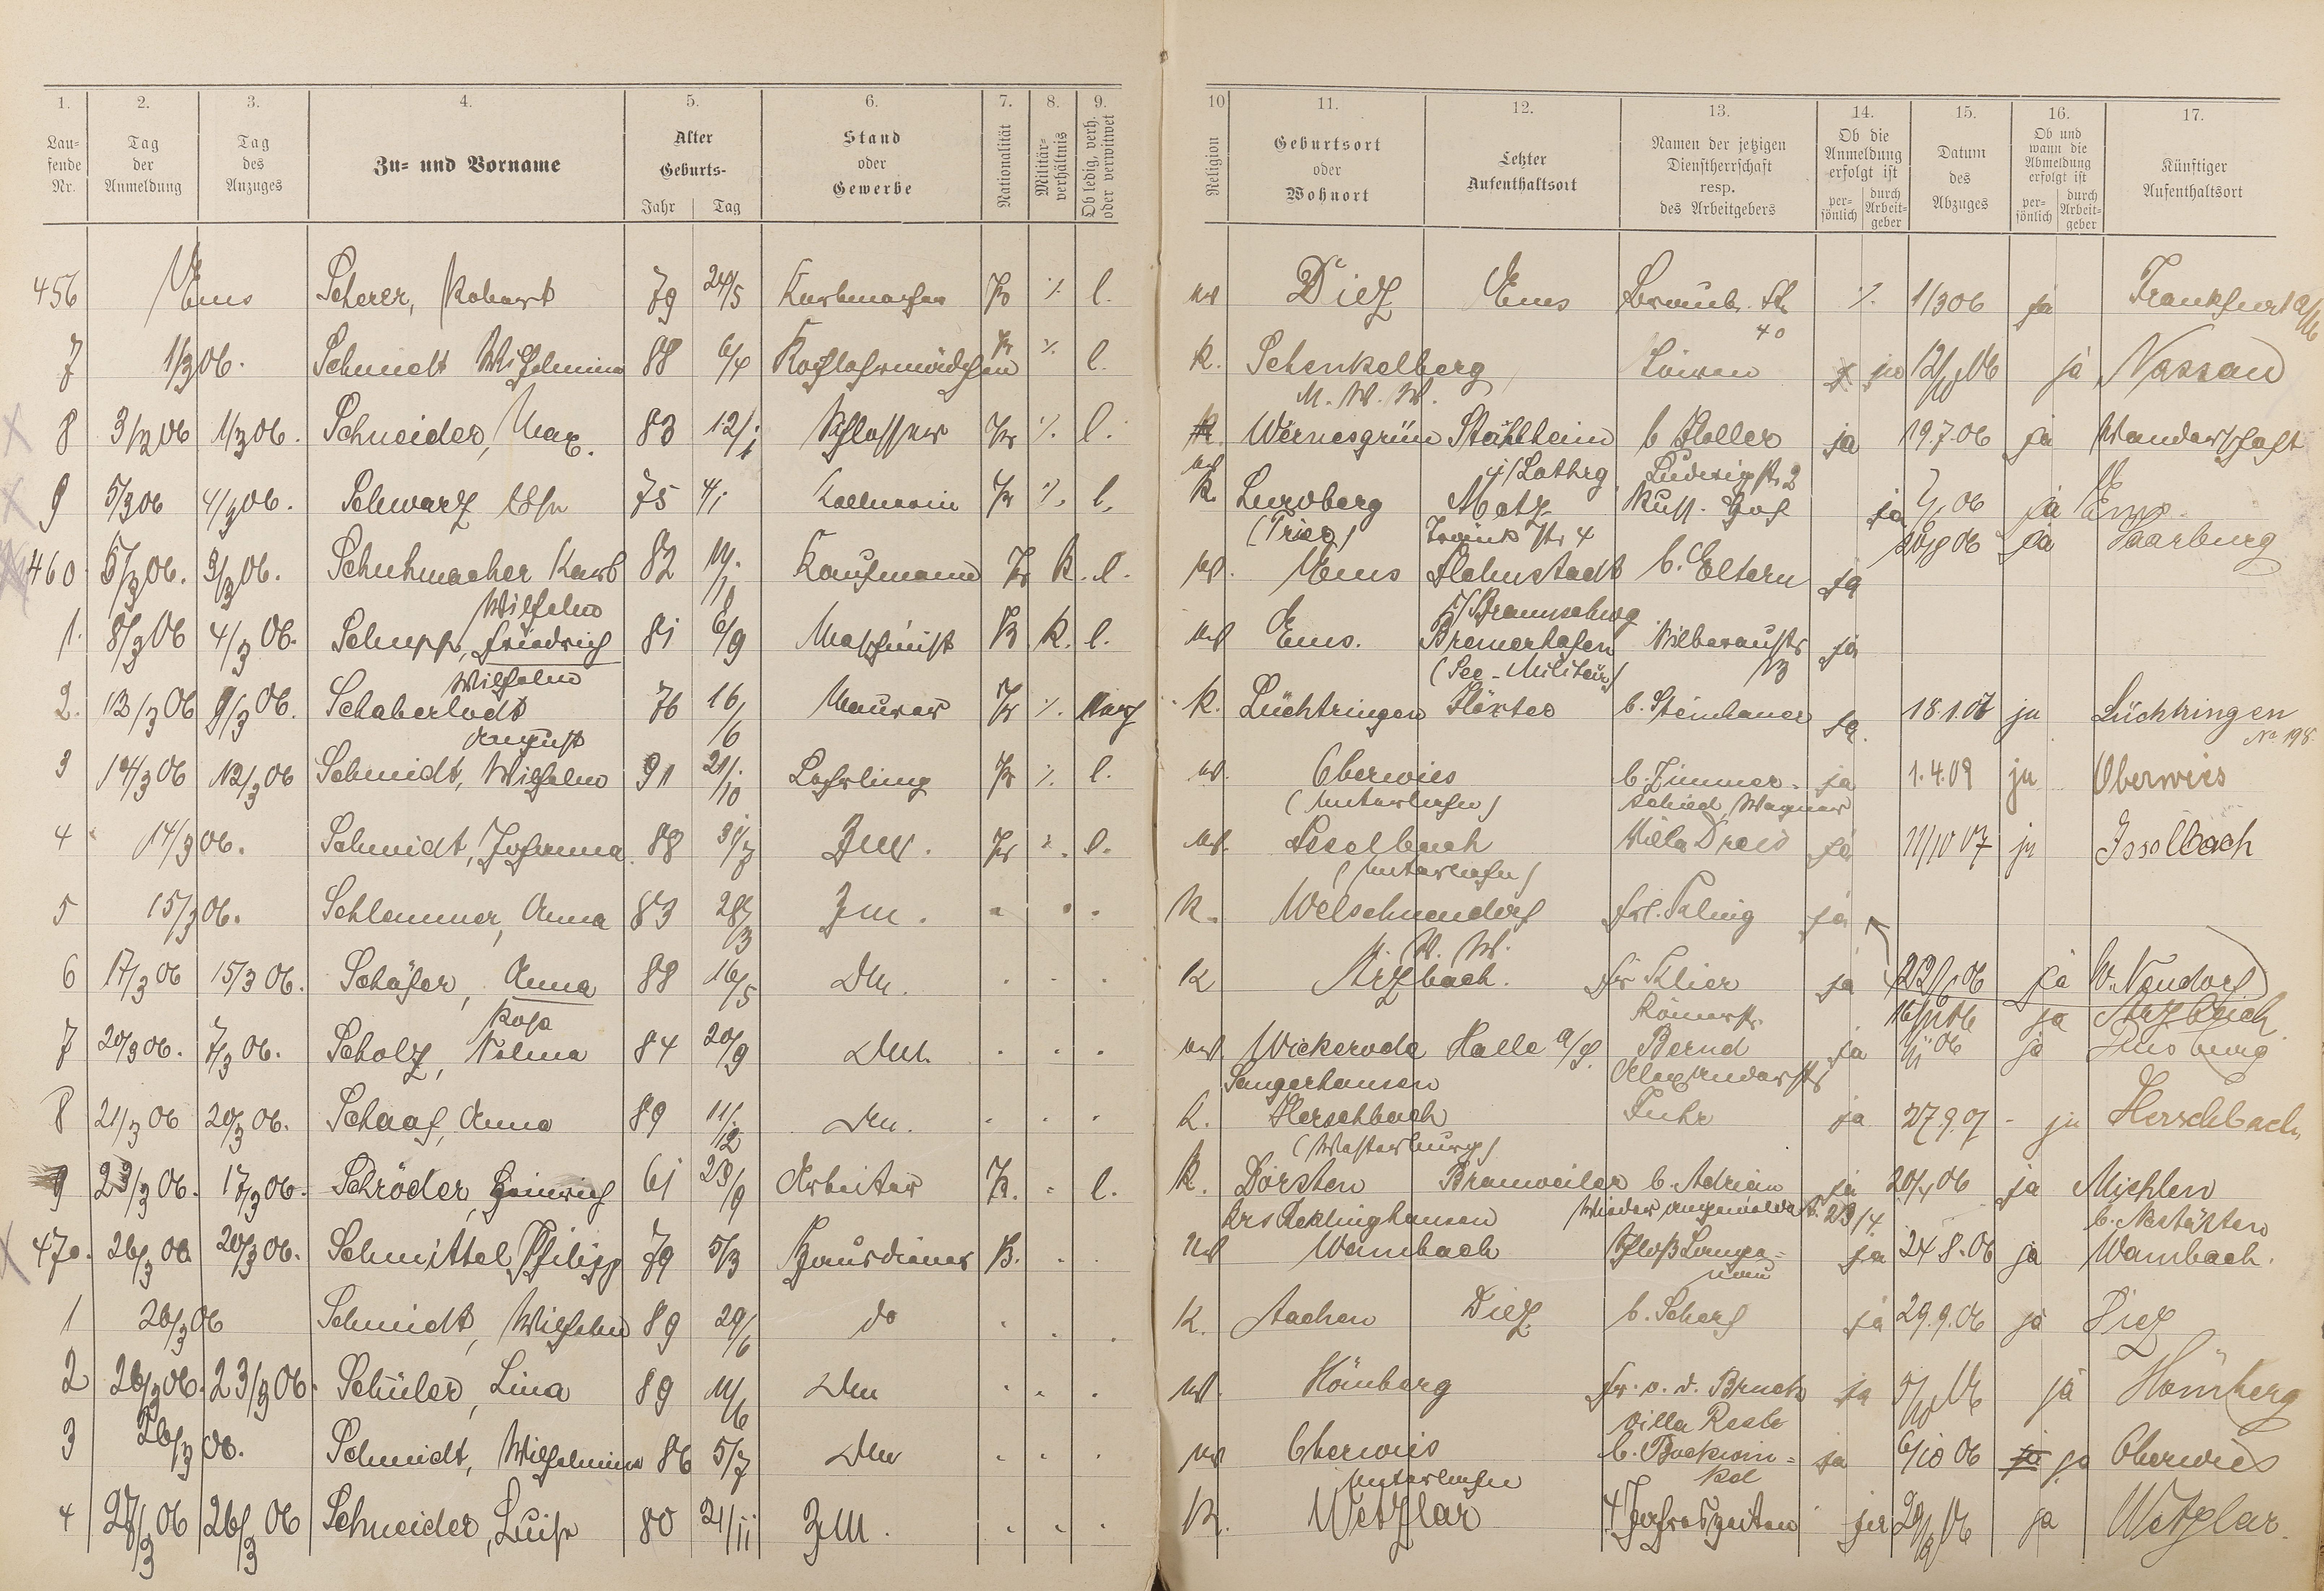 1. 2. 3. 4. 5. 6. 7. 8. 9. 10 11. 12. 13. 14. 15. 16. 17.
Lau-
fende
Nr.
Tag
der
Anmeldung
Tag
des
Anzuges
Zu- und Vorname
Alter
Geburts-
Jahr Tag
Stand
oder
Gewerbe
Nationalität
Militär-
verhältnis
Ob ledig, verh.
oder verwitwet
Religion
Geburtsort
oder
Wohnort
Letzter
Aufenthaltsort
Namen der jetzigen
Dienstherrschaft
resp.
des Arbeitgebers
Ob die
Anmeldung
erfolgt ist
per-
sönlich
durch
Arbeit-
geber
Datum
des
Abzuges
Ob und
wann die
Abmeldung
erfolgt ist
per-
sönlich
durch
Arbeit-
geber
Künftiger
Aufenthaltsort
456 Ems Scherer, Robert 79 24/5 Korbmacher Pr ./. l. ev Diez Ems Braub. Str ./. 1/3 06 ja Frankfurt a/M
40
7 1/3 06. Schmidt Wilhelmine 88 6/4 Kochlehrmädchen Pr ./. l. K. Schenkelberg Löwen ja 12/10 06 ja Nassau
M. W. W.
8 3/3 06 1/3 06. Schneider, Max. 83 12/1 Schlosser Pr ./. l. ev Wernesgrün Stahlheim b Holler ja 19.7.06 ja Wanderschaft
i/Lothrg. Ludwigstr. 2
9 5/3 06 4/3 06. Schwarz Else 75 4/1 Kellnerin Pr ./. l. K. Metz Russ. Hof ja 06 ja Ems
(Trier) 4 06 ja Saarburg
460 5/3 06. 3/3 06. Schuhmacher Karl 82 Kaufmann Pr K. l. ev. Ems Helmstadt b. Eltern ja
Wilhelm i/Braunschwg
1. 8/3 06 4/3 06. Schupp, Friedrich 81 6/9 Maschinist Pr K. l. ev Ems. Bremerhafen Silberaustr ja
Wilhelm (See-Militär) 13
2. 13/3 06 9/3 06. Schaberlodt 76 16/6 Maurer Pr ./. verh K. Lüchtringen Höxter b. Steinhauer ja 18.1.07 ja Lüchtringen
August No 198
3 14/3 06 12/3 06 Schmidt, Wilhelm 91 21/10 Lehrling Pr ./. l. ev. Oberwies b. Zimmer- ja 1.4.09 ja Oberwies
(Unterlahn) schied, Wagner
4 14/3 06. Schmidt, Johanna 88 31/7 Zm. Pr ./. l. ev. Isselbach Villa Dreis ja 11/10 07 ja Isselbach
(Unterlahn)
5 15/3 06. Schlemmer, Anna 83 28/3 Zm. " " " K. Welschneudorf Frl. ja
U. W. W.
6 17/3 06 15/3 06. Schäfer, Anna 88 16/5 Dm. " " " K Arzbach. Fr Klier ja 23/6 06 ja W. Neudorf
Rosa Römerstr. 16/11 06 ja Arzbach
7 20/3 06. 7/3 06. Scholz, Selma 84 20/9 Dm. " " " ev. Wickerode Halle a/S. Bernd ja 1/11 06 ja
Sangerhausen Alexanderstr
8 21/3 06 20/3 06. Schaaf, Anna 89 11/12 Dm. " " " K. Herschbach Fuhr ja 27.9.07 ja Herschbach
(Westerburg)
9 23/3 06. 17/3 06. Schröder, Heinrich 61 23/9 Arbeiter Pr. " l. K. Dorsten Brauweiler b. Adrian ja 20/4 06 ja Miehlen
Krs Recklinghausen Wieder angemeldet 23/4 b. Nastätten
470. 26/3 06 20/3 06. Schmittel, Philipp 79 5/3 Hausdiener Pr. " " ev Wambach Schloß Langen- ja 24.8.06 ja Wambach.
nau
1 26/3 06 Schmidt, Wilhelm 89 29/6 do " " " K. Aachen Diez b. Scherf ja 29.9.06 ja Diez
2 26/3 06. 23/3 06. Schüler, Lina 89 11/6 Dm " " " ev. Hömberg Fr. v. d. Bruck ja 5/10 06 ja Hömberg
Villa
3 26/3 06. Schmidt, Wilhelmine 86 5/7 Dm " " " ev Oberwies b. Buckwin- ja 6/10 06 ja ja Oberwies
Unterlahn kel
4 27/3 06 26/3 06 Schneider, Luise 80 21/11 Zm. " " " K. Wetzlar 4 Jahreszeiten ja 06 ja Wetzlar.